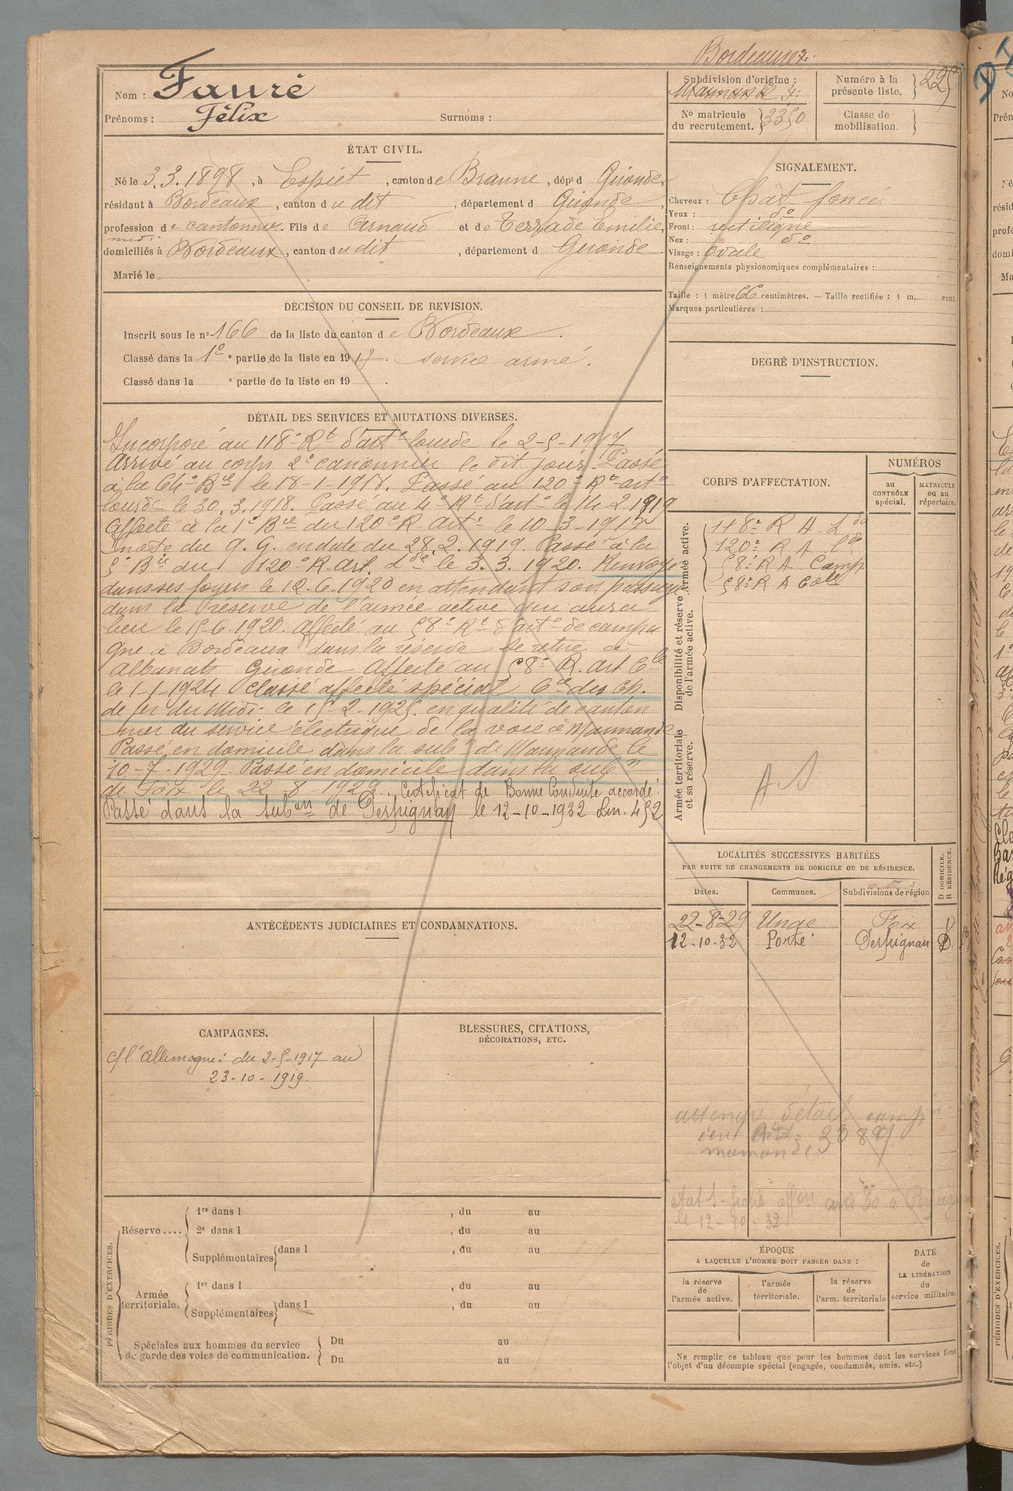 Bordeaux.
Nom : Fauré
Prénoms : Félix Surnoms :
Subdivision d'origine :
Numéro à la présente liste.
No matricule du recrutement. 3350
Classe de mobilisation.
ÉTAT CIVIL.
Né le 3.3.1898, à Espiet, canton de Branne, dépt d Gironde,
résidant à Bordeaux, canton du dit, département d Gironde,
profession de cantonnier midi. Fils de Arnaud et de Terrade Emilie,
domiciliés à Bordeaux, canton du dit, département d Gironde
Marié le
DÉCISION DU CONSEIL DE REVISION.
Inscrit sous le no 166 de la liste du canton d e Bordeaux
Classé dans la 1e partie de la liste en 1917. service armé.
Classé dans la e partie de la liste en 19
DÉTAIL DES SERVICES ET MUTATIONS DIVERSES.
Incorporé au 118e Rt d'arte lourde le 2-5-1917
Arrivé au corps 2e canonnier le dit jour. Passé
à la 64e Bie le 18-1-1918. Passé au 120e Rt arte
lourde le 30.3.1918. Passé au 4e Rt d'arte le 14 2 1919
Affecté à la 1e Bie du 120e R arte le 10-3-1919
(note du G.G. en date du 28.2.1919. Passé à la
5e Bie du 120e R. art. Lde le 3.3.1920. Renvoyé
dans ses foyers le 12.6.1920 en attendant son passage
dans la réserve de l'armée active qui aura
lieu le 15-6-1920. Affecté au 58e Rt d'arte de campa
gne à Bordeaux dans la réserve se retire à
Gironde Affecté au 58e R. art Cle
le 1-1-1924 Classé affecté spécial Cie des Ch.
de fer du Midi le 15-2-1925. en qualité de canton
nier du service électrique de la voie à Marmande
Passé en domicile dans la subon de Marmande le
10-7-1929. Passé en domicile dans la subon
de Foix le 22-8-1929. Certificat de Bonne Conduite accordé.
Passé dans la subon de Perpignan le 12-10-1932 Lin. 452
ANTÉCÉDENTS JUDICIAIRES ET CONDAMNATIONS.
CAMPAGNES.
C/ l'Allemagne : du 2-5-1917 au
23-10-1919.
BLESSURES, CITATIONS,
DÉCORATIONS, ETC.
PÉRIODES D'EXERCICES.
Réserve....
1re dans l , du au
2e dans l , du au
Supplémentaires dans l , du au
Armée territoriale.
1re dans l , du au
Supplémentaires dans l , du au
Spéciales aux hommes du service de garde des voies de communication.
Du au
Du au
SIGNALEMENT.
Cheveux : Chât foncé
Yeux : do
Front : rectiligne
Nez : do
Visage : ovale
Renseignements physionomiques complémentaires :
Taille : 1 mètre 66 centimètres. — Taille rectifiée : 1 m. cent.
Marques particulières :
DEGRÉ D'INSTRUCTION.
CORPS D'AFFECTATION.
NUMÉROS
au CONTRÔLE spécial.
MATRICULE ou au répertoire.
Armée active.
118e R A Lde
120e R A Lde
58e R A Camp
58e R A Cole
Disponibilité et réserve de l'armée active.
Armée territoriale et sa réserve.
AS
LOCALITÉS SUCCESSIVES HABITÉES
PAR SUITE DE CHANGEMENTS DE DOMICILE OU DE RÉSIDENCE.
D DOMICILE. R RÉSIDENCE.
Dates. Communes. Subdivisions de région
22-8-29 Foix D
12-10-32 Porté Perpignan D
le 12-10-32
ÉPOQUE
A LAQUELLE L'HOMME DOIT PASSER DANS :
la réserve de l'armée active.
l'armée territoriale.
la réserve de l'arm. territoriale
DATE de LA LIBÉRATION du service militaire.
Ne remplir ce tableau que pour les hommes dont les services font
l'objet d'un décompte spécial (engagés, condamnés, omis. etc.)